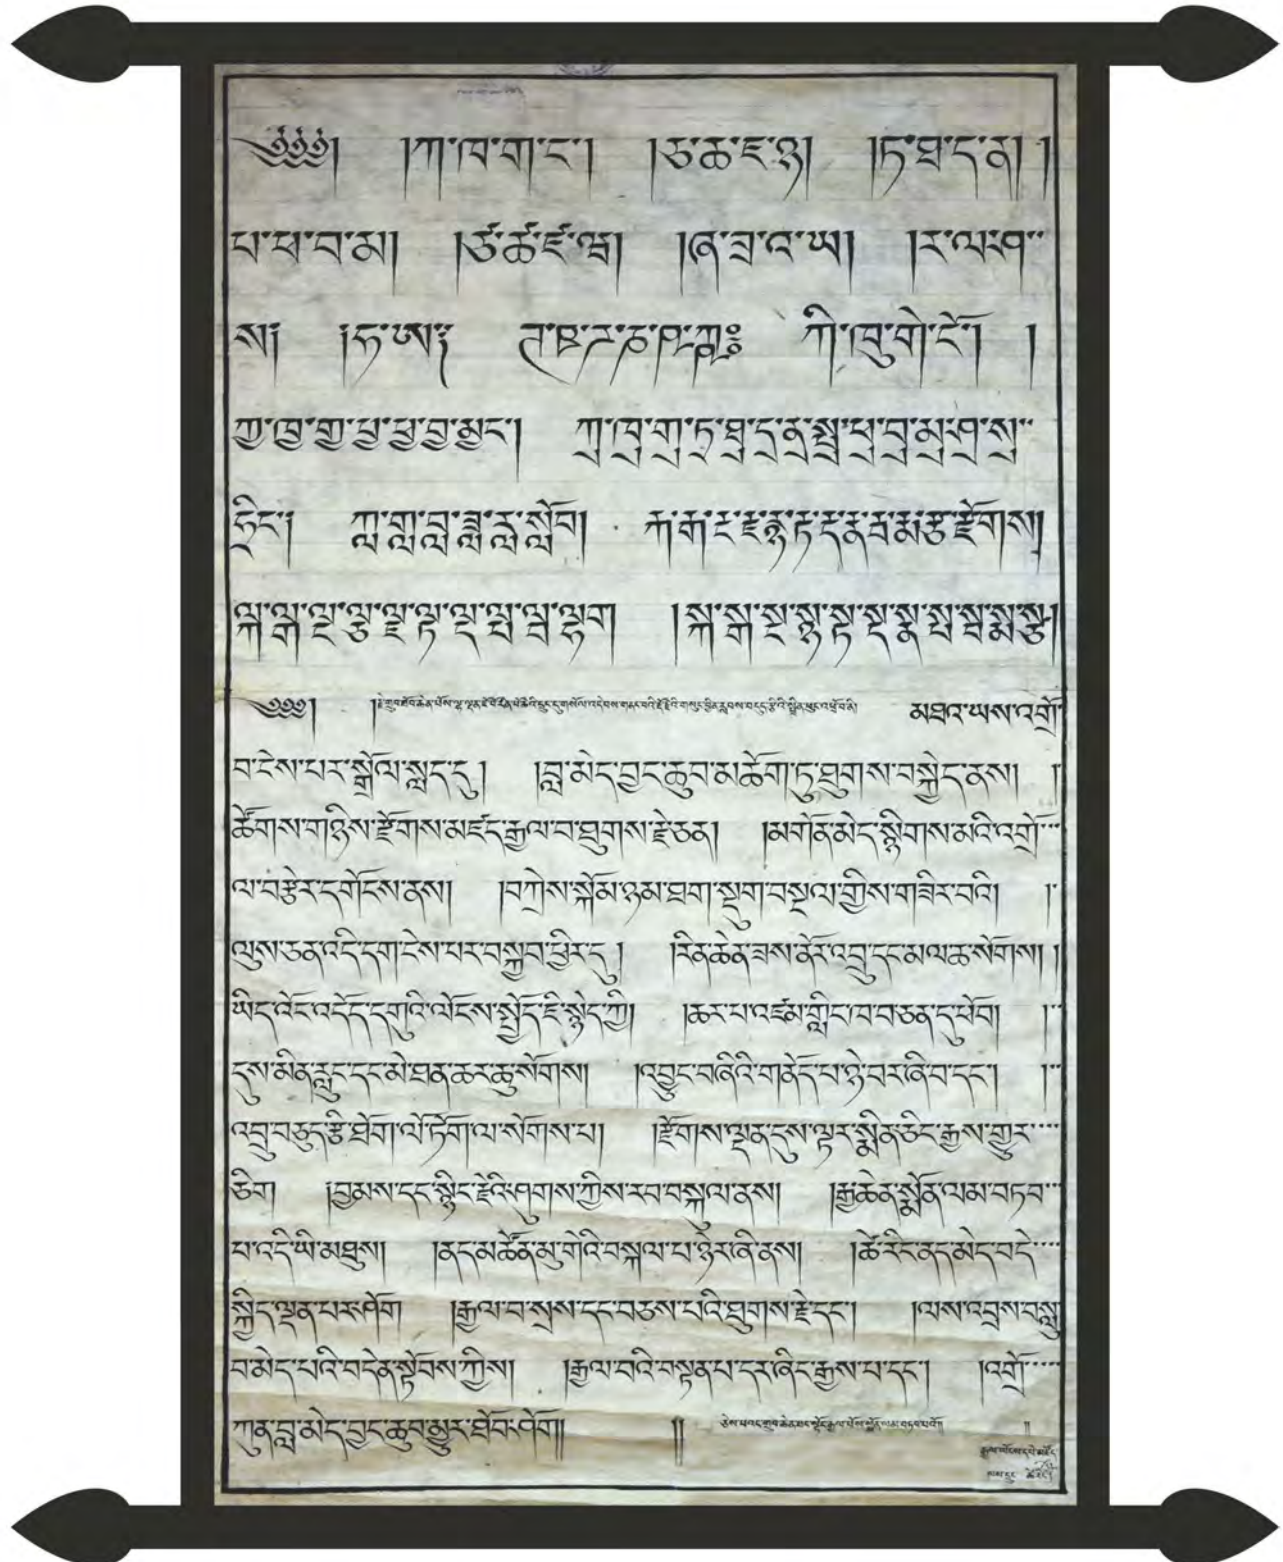 ༄༅༅། །ཀ་ཁ་ག་ང་། །ཅ་ཆ་ཇ་ཉ། །ཏ་ཐ་ད་ན། །
པ་ཕ་བ་མ། །ཙ་ཚ་ཛ་ཝ། །ཞ་ཟ་འ་ཡ། །ར་ལ་ཤ་
ས། །ཧ་ཨ།
ཀི་ཁུ་གེ་ངོ། །
ཀྱ་ཁྱ་གྱ་པྱ་ཕྱ་བྱ་མྱང་། ཀྲ་ཁྲ་གྲ་ཏྲ་ཐྲ་དྲ་ནྲ་སྤྲ་ཕྲ་བྲ་མྲ་ཤྲ་སྲ་
ཧྲིང་། ཀླ་གླ་བླ་ཟླ་རླ་སློབ། རྐ་རྒ་རྔ་རྗ་རྙ་རྟ་རྡ་རྣ་རྦ་རྨ་རྩ་རྫོགས།
ལྐ་ལྒ་ལྔ་ལྕ་ལྗ་ལྟ་ལྡ་ལྤ་ལྦ་ལྷག །སྐ་སྒ་སྔ་སྙ་སྟ་སྡ་སྣ་སྤ་སྦ་སྨ་སྩ།
༄༅༅། མཐའ་ཡས་འགྲོ་
བ་ངེས་པར་སྒྲོལ་སླད་དུ། །བླ་མེད་བྱང་ཆུབ་མཆོག་ཏུ་ཐུགས་བསྐྱེད་ནས། །
ཚོགས་གཉིས་རྫོགས་མཛད་རྒྱལ་བ་ཐུགས་རྗེ་ཅན། །མགོན་མེད་སྙིགས་མའི་འགྲོ་
ལ་བརྩེར་དགོངས་ནས། །བཀྲེས་སྐོམ་ཉམ་ཐག་སྡུག་བསྔལ་གྱིས་གཟིར་བའི། །
ལུས་ཅན་འདི་དག་ངེས་པར་བསྐྱབ་ཕྱིར་དུ། །རིན་ཆེན་ཟས་ནོར་འབྲུ་དང་མལ་ཆ་སོགས། །
ཡིད་འོང་འདོད་དགུའི་ལོངས་སྤྱོད་ཇི་སྙེད་ཀྱི། །ཆར་པ་འཛམ་གླིང་ཁ་བ་ཅན་དུ་ཕོབ། །
དུས་མིན་རླུང་དང་མེ་ཐན་ཆར་ཆུ་སོགས། །འབྱུང་བཞིའི་གནོད་པ་ཉེ་བར་ཞི་བ་དང་། །
འབྲུ་བཅུད་རྩི་ཐོག་ལོ་ཏོག་ལ་སོགས་པ། །རྫོགས་ལྡན་དུས་ལྟར་སྨིན་ཅིང་རྒྱས་གྱུར་
ཅིག །བྱམས་དང་སྙིང་རྗེའི་ཤུགས་ཀྱིས་རབ་བསྐུལ་ནས། །རྒྱ་ཆེན་སྨོན་ལམ་བཏབ་
པ་འདི་ཡི་མཐུས། །ནད་མཚོན་མུ་གེའི་བསྐལ་པ་ཉེར་ཞི་ནས། །ཚེ་རིང་ནད་མེད་བདེ་
སྐྱིད་ལྡན་པར་ཤོག །རྒྱལ་བ་སྲས་དང་བཅས་པའི་ཐུགས་རྗེ་དང་། །ལས་འབྲས་བསླུ་
བ་མེད་པའི་བདེན་སྟོབས་ཀྱིས། །རྒྱལ་བའི་བསྟན་པ་དར་ཞིང་རྒྱས་པ་དང་། །འགྲོ་
ཀུན་བླ་མེད་བྱང་ཆུབ་མྱུར་ཐོབ་ཤོག།། །། ཅེས་པའང་གྲུབ་ཆེན་ཐང་སྟོང་རྒྱལ་པོས་སྨོན་ལམ་བཏབ་པའོ།།